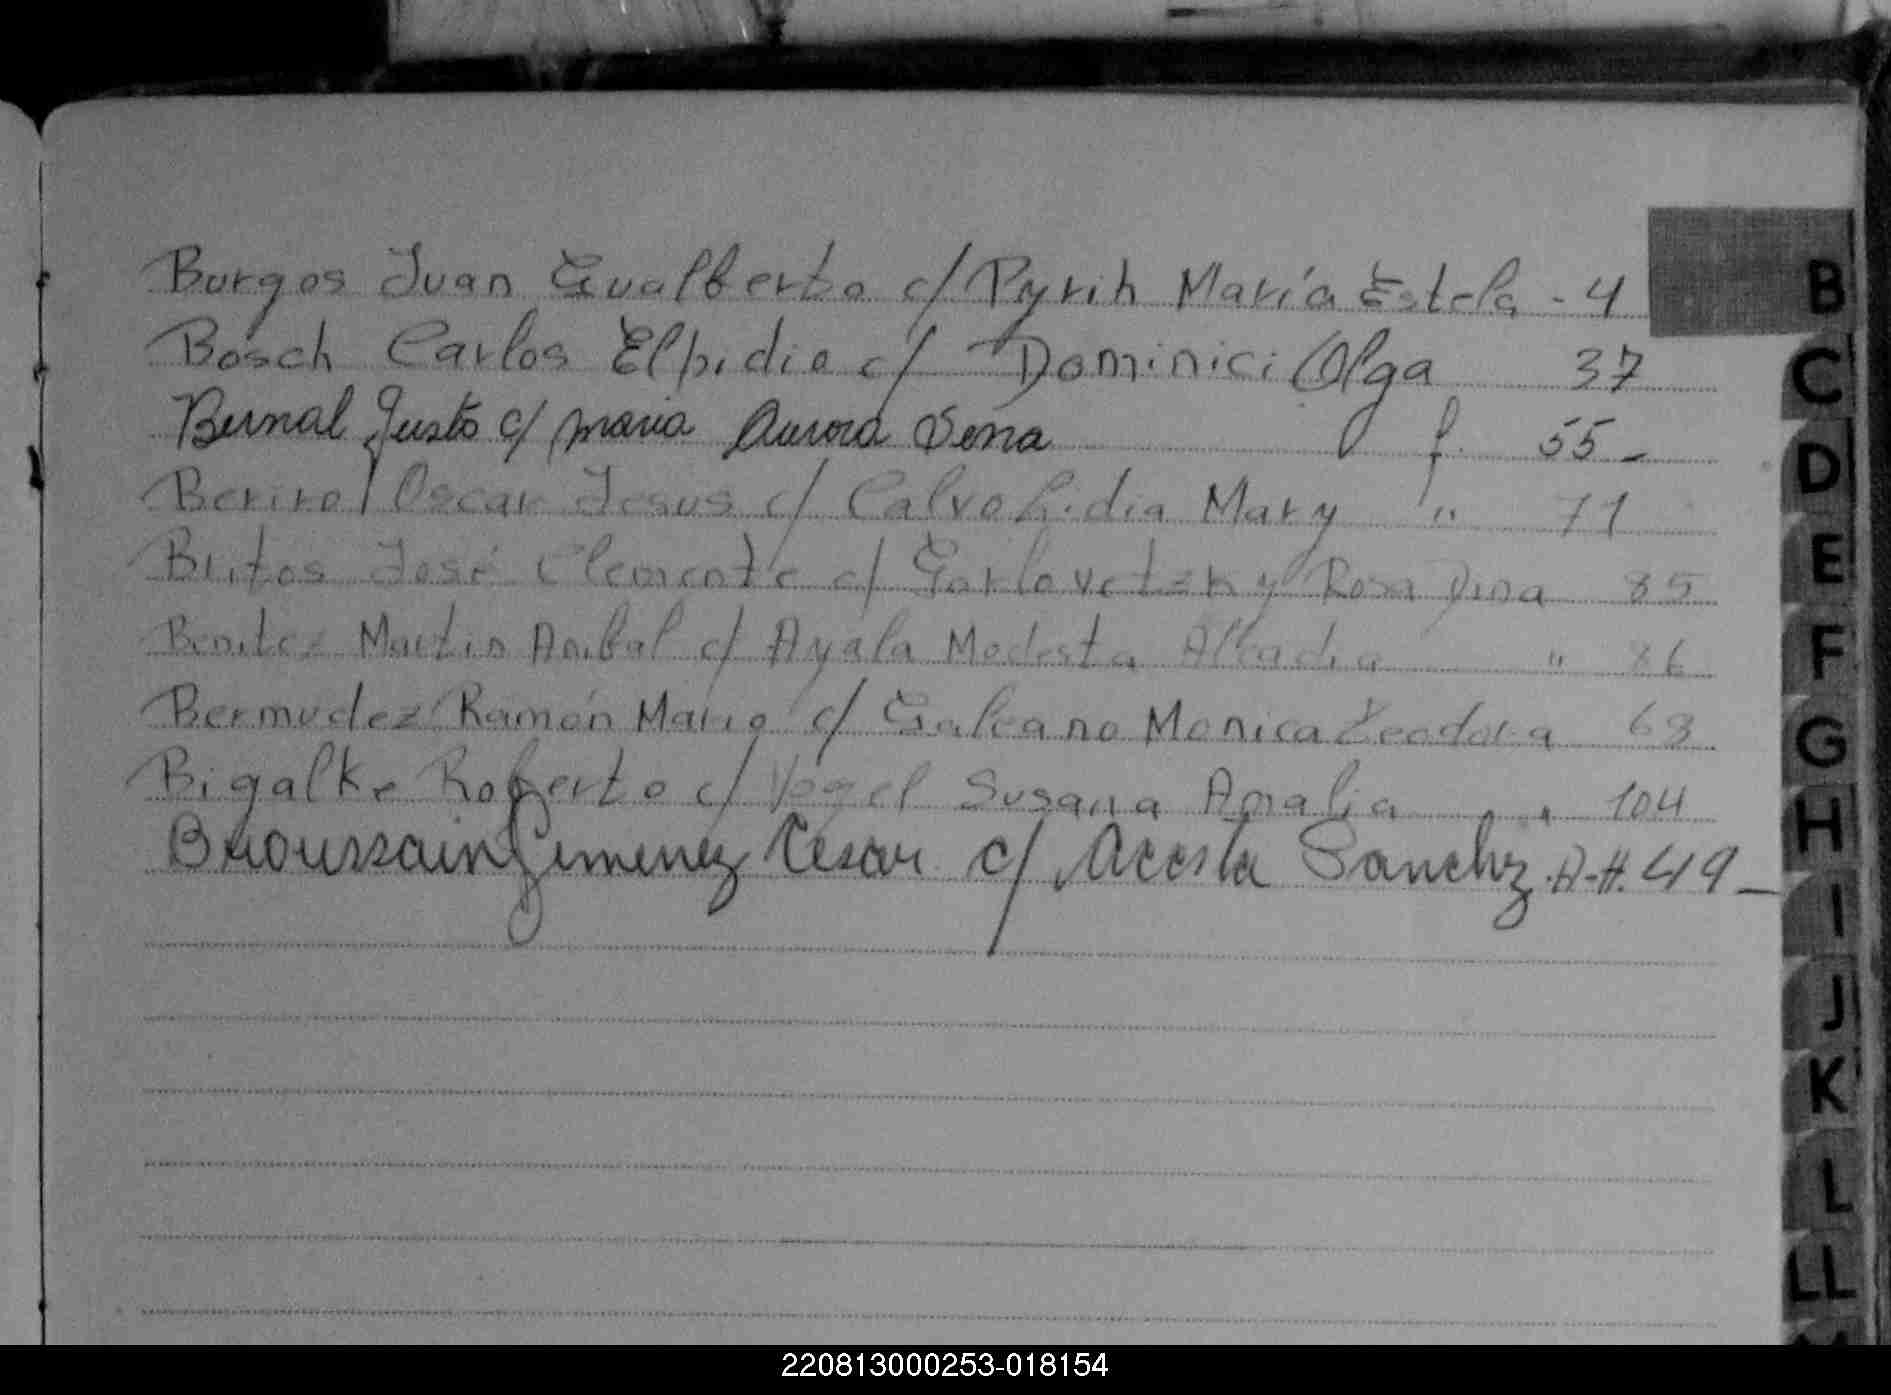 Burgos Juan Gualberto c/ Pyrih María Estela - 4
Bosch Carlos Elpidio c/ Dominici Olga 37
Bernal Justo c/ maria Aurora Sena f. 55 -
Oscar Jesus c/ Calvo Lidia Mary " 71
José Clemente c/ Rosa Dina 85
Benitez Martin Anibal c/ Ayala Modesta " 86
Bermudez Ramón Mario c/ Galeano Monica Teodora 68
Bigalke Roberto c/ Vogel Susana Amalia " 104
Broussain Jimenez Cesar c/ Acosta Sanchz A-H. 49 -
B
C
D
E
F
G
H
I
J
K
L
LL
220813000253-018154